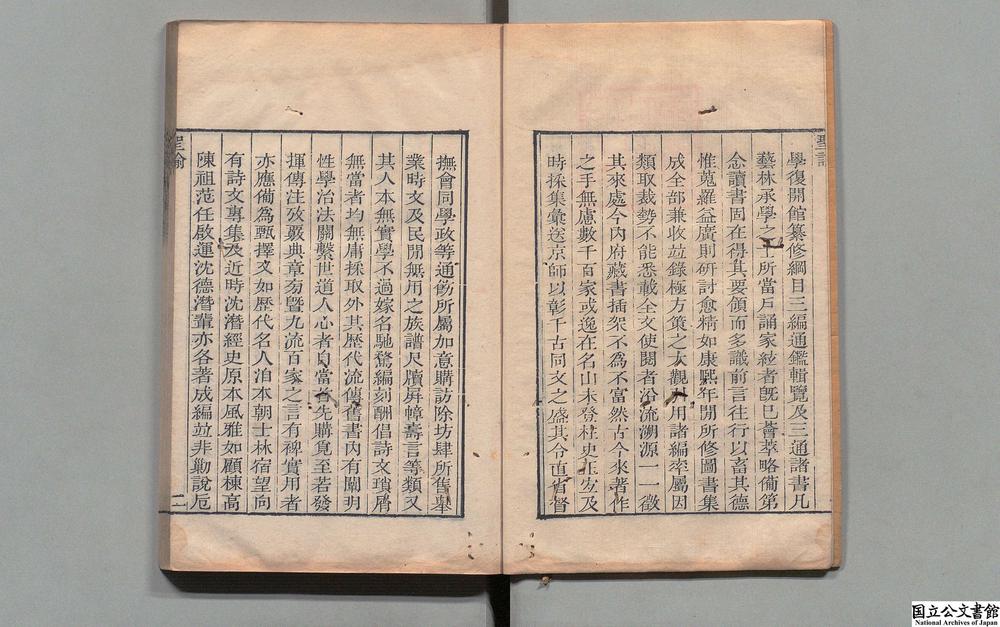 聖諭
學復開館纂修綱目三編通鑑輯覽及三通諸書凡
藝林承學之士所當戶誦家絃者旣已薈萃略備第
念讀書固在得其要領而多識前言往行以畜其德
惟蒐羅益廣則硏討愈精如康熙年閒所修圖書集
成全部兼收竝錄極方策之大觀引用諸編率屬因
類取裁勢不能悉載全文使閱者沿流溯源一一徵
其來處今內府藏書插架不爲不富然古今來著作
之手無慮數千百家或逸在名山未登柱史正宜及
時採集彙送京師以彰千古同文之盛其令直省督
撫會同學政等通飭所屬加意購訪除坊肆所售舉
業時文及民閒無用之族譜尺牘屛幛壽言等類又
其人本無實學不過嫁名馳騖編刻酬倡詩文瑣屑
無當者均無庸採取外其歷代流傳舊書內有闡明
性學治法關繫世道人心者自當首先購覓至若發
揮傳注攷覈典章旁暨九流百家之言有裨實用者
亦應備爲甄擇又如歷代名人洎本朝士林宿望向
有詩文專集及近時沈潛經史原本風雅如顧棟高
陳祖范任啟運沈德潛輩亦各著成編竝非勦說卮
聖諭
二
国立公文書館
National Archives of Japan